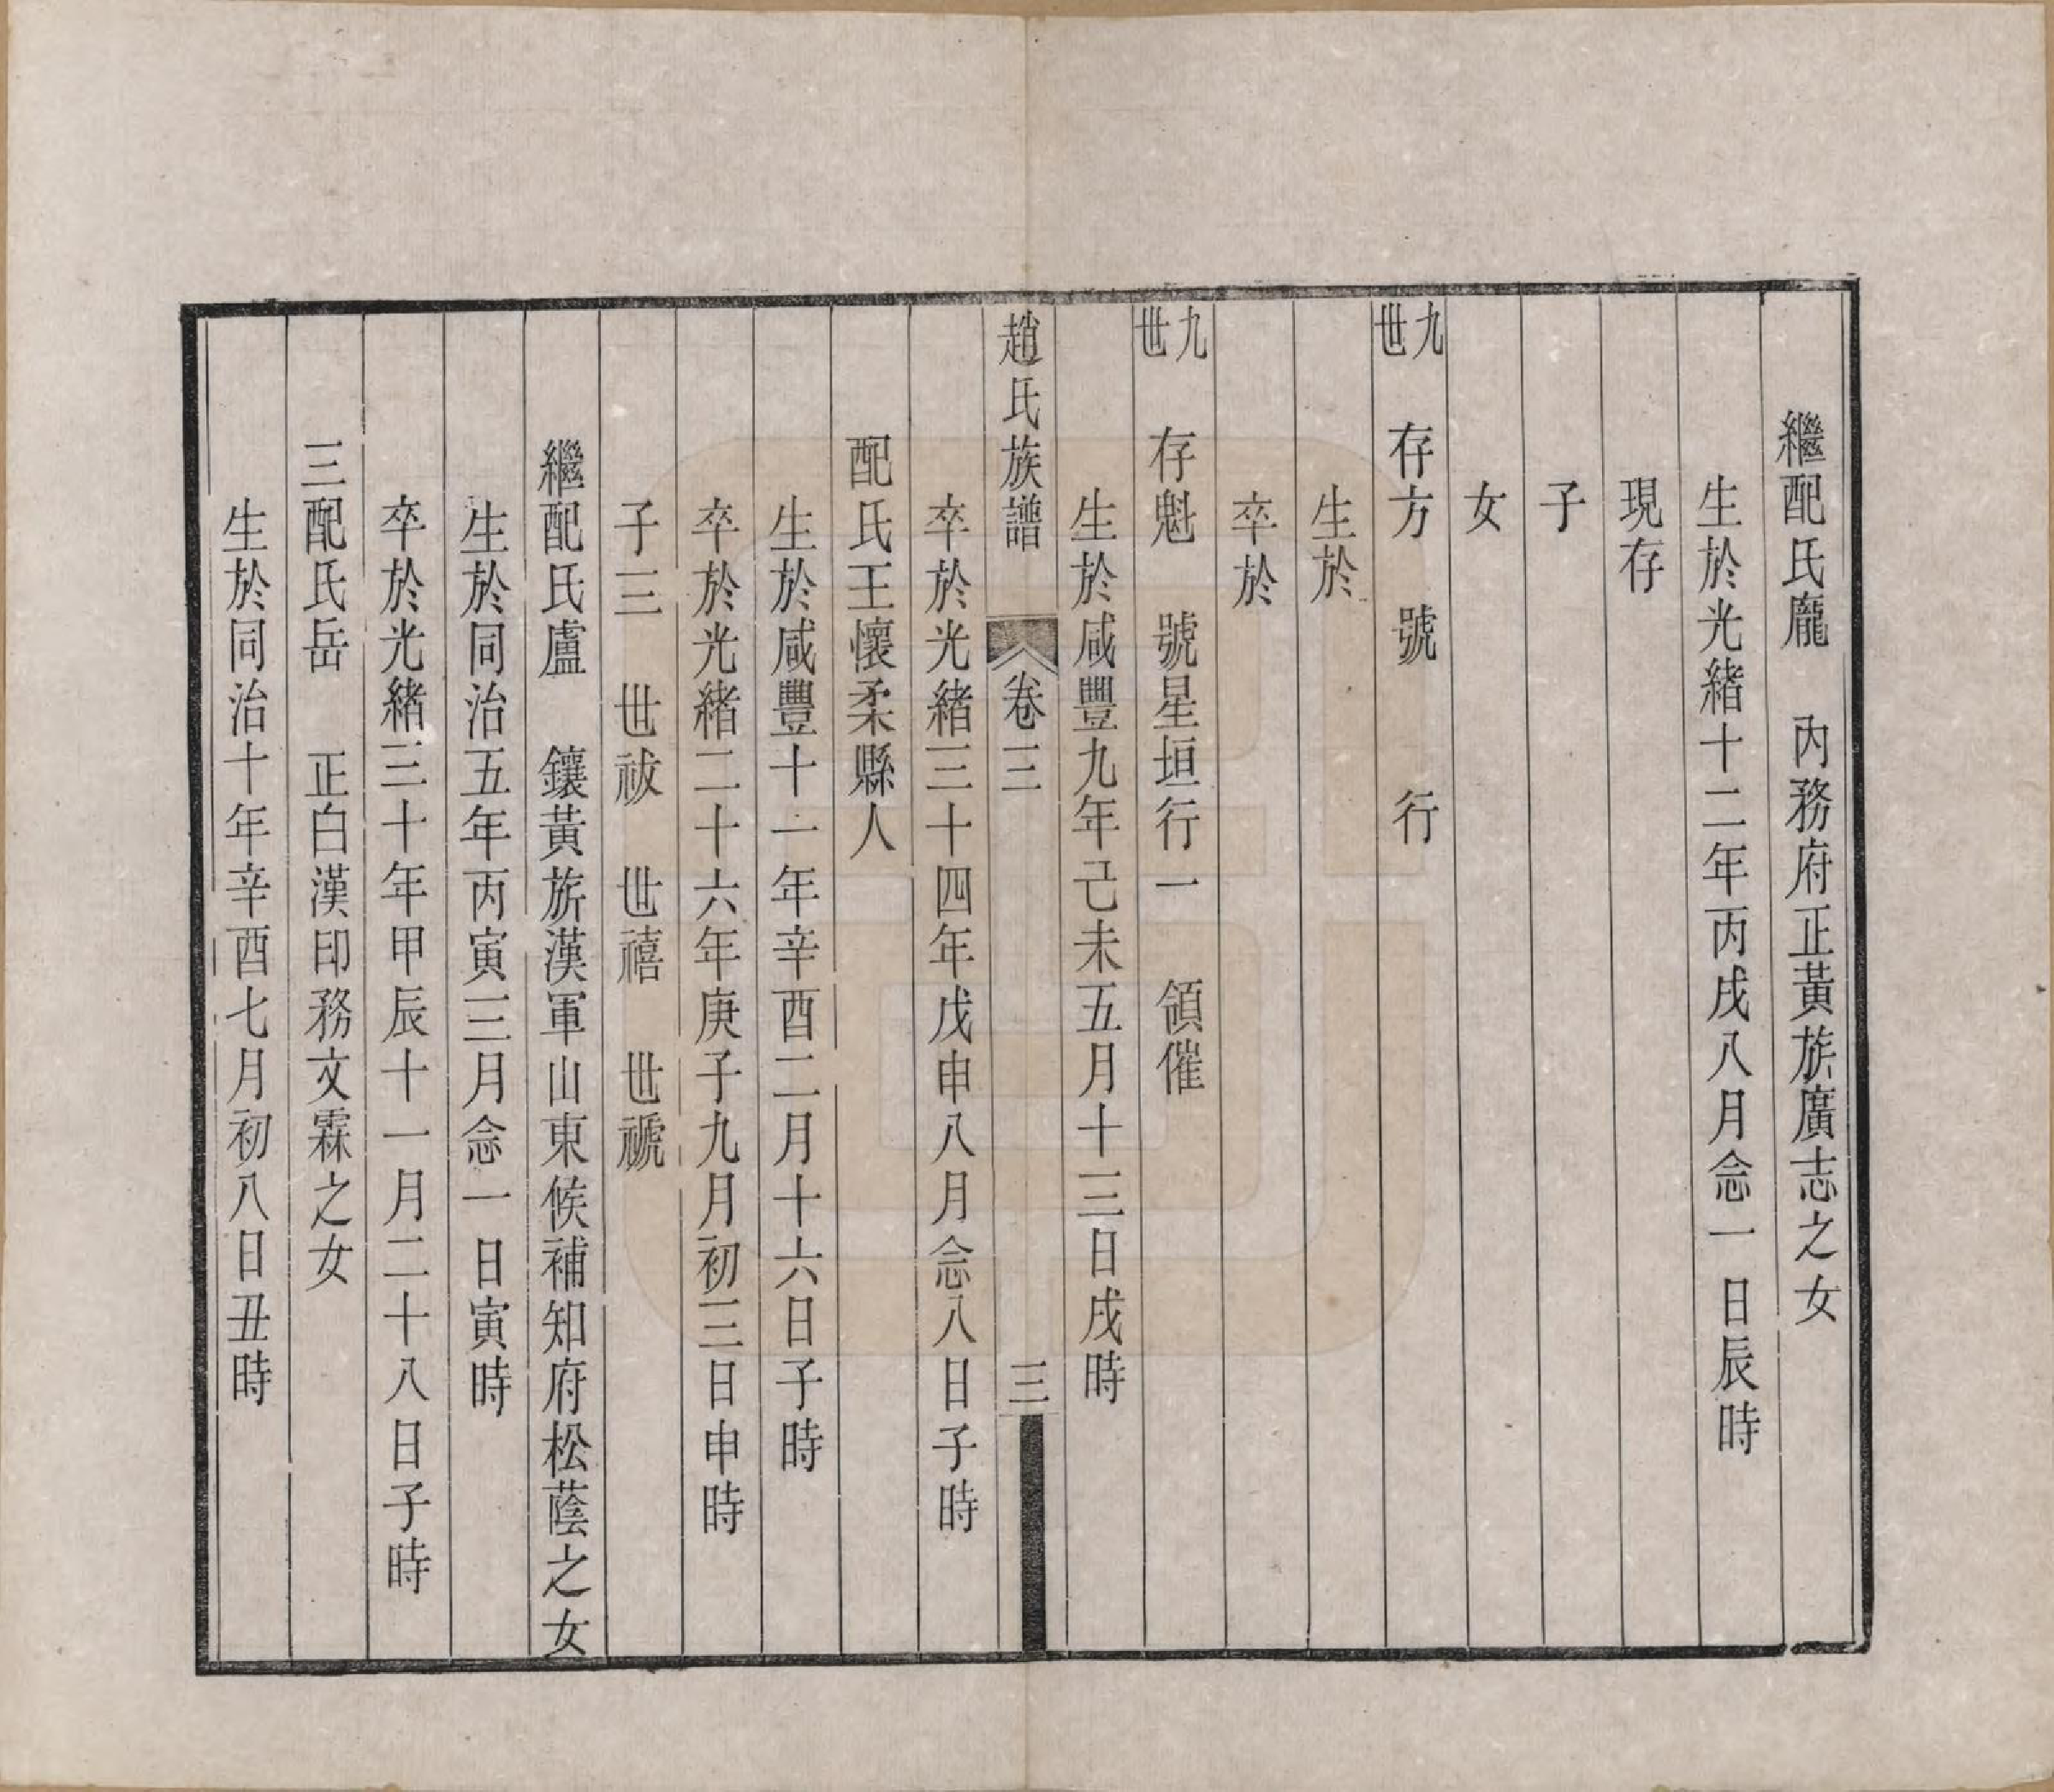 繼配氏龐　內務府正黃旂廣志之女
生於光緒十二年丙戌八月念一日辰時
現存
子
女
九世　存方　號　行
生於
卒於
九世　存魁　號星垣行一　領催
生於咸豐九年己未五月十三日戌時
趙氏族譜　卷三　三
卒於光緒三十四年戊申八月念八日子時
配氏王懷柔縣人
生於咸豐十一年辛酉二月十六日子時
卒於光緒二十六年庚子九月初三日申時
子三　世祓　世禧　世禠
繼配氏盧　鑲黃旂漢軍山東候補知府松蔭之女
生於同治五年丙寅三月念一日寅時
卒於光緒三十年甲辰十一月二十八日子時
三配氏岳　正白漢印務文霖之女
生於同治十年辛酉七月初八日丑時